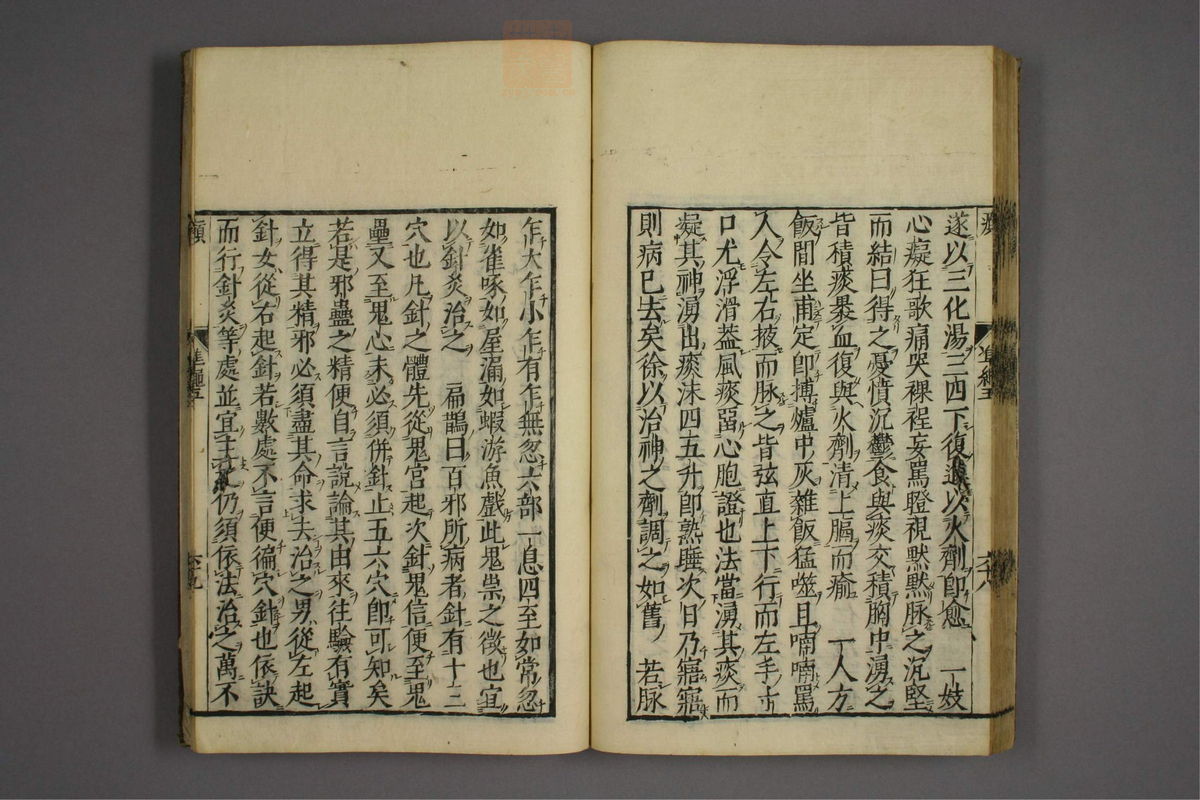 遂以三化湯三四下復進以火劑即愈　一妓
心癡狂歌痛哭裸裎妄罵瞪視黙黙脉之沉堅
而結曰得之憂憤沉鬱食與痰交積胸中湧之
皆積痰褁血復與火劑清上膈而瘉　一人方
飯間坐甫定即搏爐中灰雜飯猛噬且喃喃罵
人令左右掖而脉之皆弦直上下行而左手寸
口尤浮滑蓋風痰畱心胞證也法當湧其痰而
凝其神湧出痰沫四五升即熟睡次日乃寤寤
則病已去矣徐以治神之劑調之如舊　若脉
乍大乍小乍有乍無忽六部一息四至如常忽
如雀啄如屋漏如蝦游魚戲此鬼祟之徵也宜
以針灸治之　扁鵲曰百邪所病者針有十三
穴也凡針之體先從鬼宮起次針鬼信便至鬼
壘又至鬼心未必須併針止五六穴即可知矣
若是邪蠱之精便自言說論其由來往驗有實
立得其精邪必須盡其命求去治之男從左起
針女從右起針若數處不言便徧穴針也依訣
而行針灸等處並宜主仍須依法治之萬不
癲
準繩五
六九